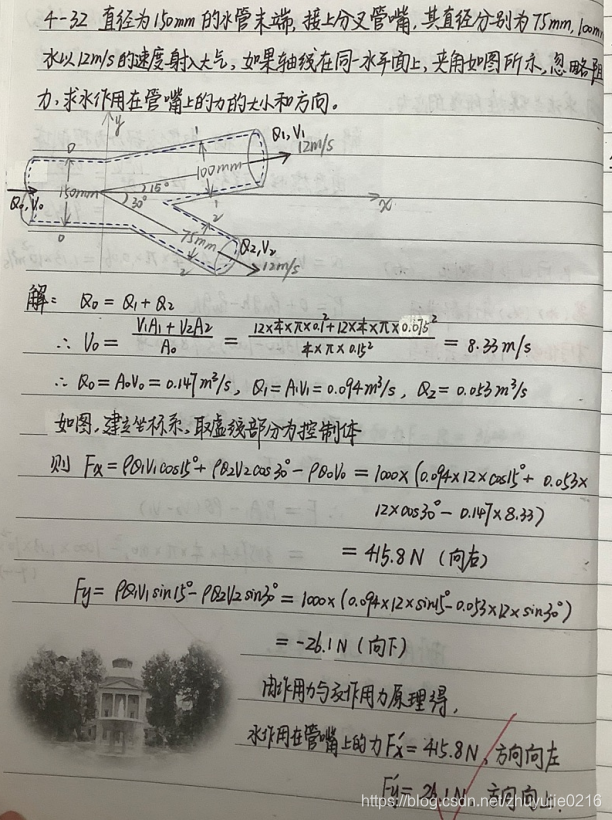 4-32 直径为150mm的水管末端,接上分叉管嘴,其直径分别为75mm,100mm
水以12m/s的速度射入大气,如果轴线在同一水平面上,夹角如图所示,忽略阻
力,求水作用在管嘴上的力的大小和方向。
y
0
1
Q1,V1
12m/s
100mm
150mm
15°
30°
x
Q0,V0
1
2
75mm
Q2,V2
0
2
12m/s
解: Q0 = Q1 + Q2
∴ V0 = (V1A1 + V2A2)/A0 = (12×¼×π×0.1²+12×¼×π×0.075²)/(¼×π×0.15²) = 8.33m/s
∴ Q0=A0V0=0.147m³/s, Q1=A1V1=0.094m³/s, Q2=0.053m³/s
如图,建立坐标系,取虚线部分为控制体
则 Fx=ρQ1V1cos15°+ρQ2V2cos30°-ρQ0V0=1000×(0.094×12×cos15°+0.053×
12×cos30°-0.147×8.33)
=415.8N(向右)
Fy=ρQ1V1sin15°-ρQ2V2sin30°=1000×(0.094×12×sin15°-0.053×12×sin30°)
=-26.1N(向下)
由作用力与反作用力原理得,
水作用在管嘴上的力Fx'=415.8N,方向向左
Fy'=26.1N 方向向上.
https://blog.csdn.net/zhuyujie0216